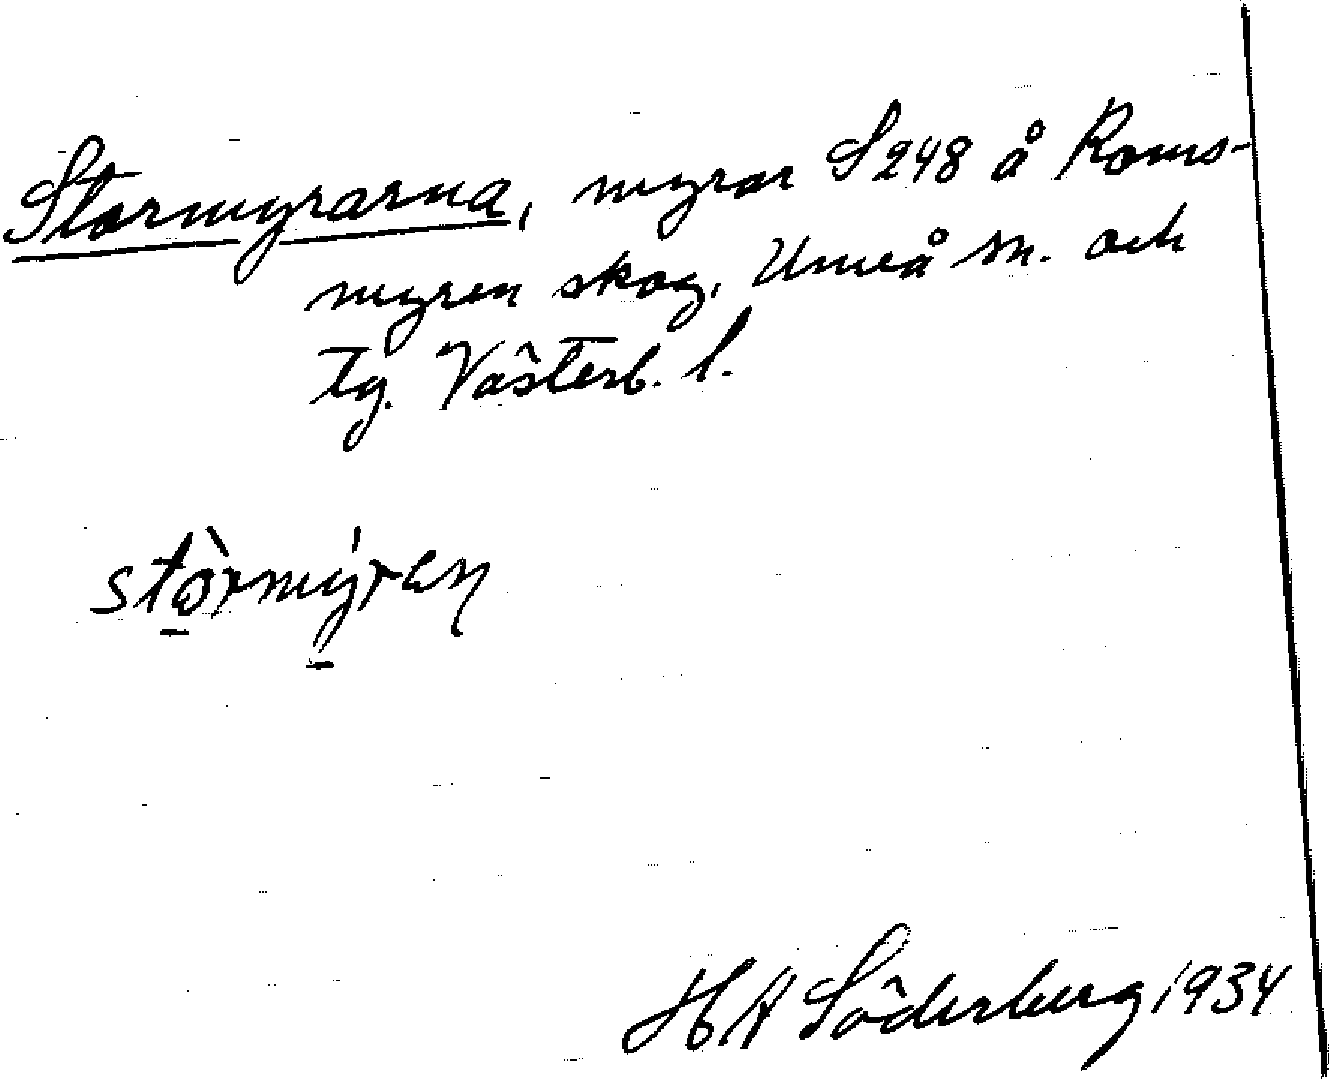 Stormyrarna, myrar S 248 å Roms-
myren skog, Umeå sn. och
tg. Västerb. l.
stòrmýren
H A Söderberg 1934